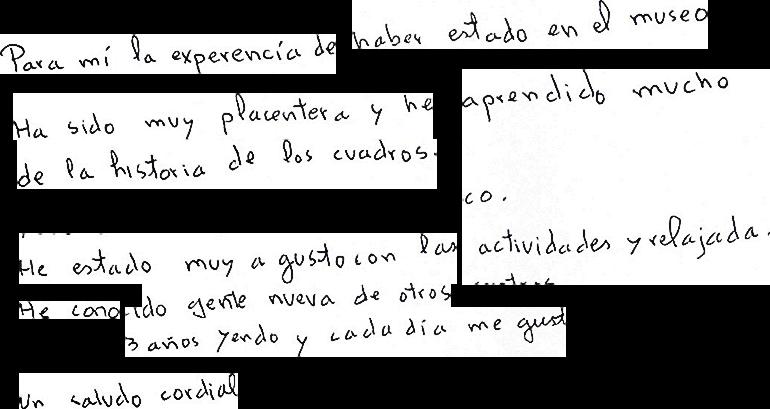 Para mí la experencía de haber estado en el museo
Ha sido muy placentera y he aprendido mucho
de la historia de los cuadros.
co.
He estado muy a gusto con las actividades y relajada.
He conocido gente nueva de otros
3 años yendo y cada día me gust
Un saludo cordial